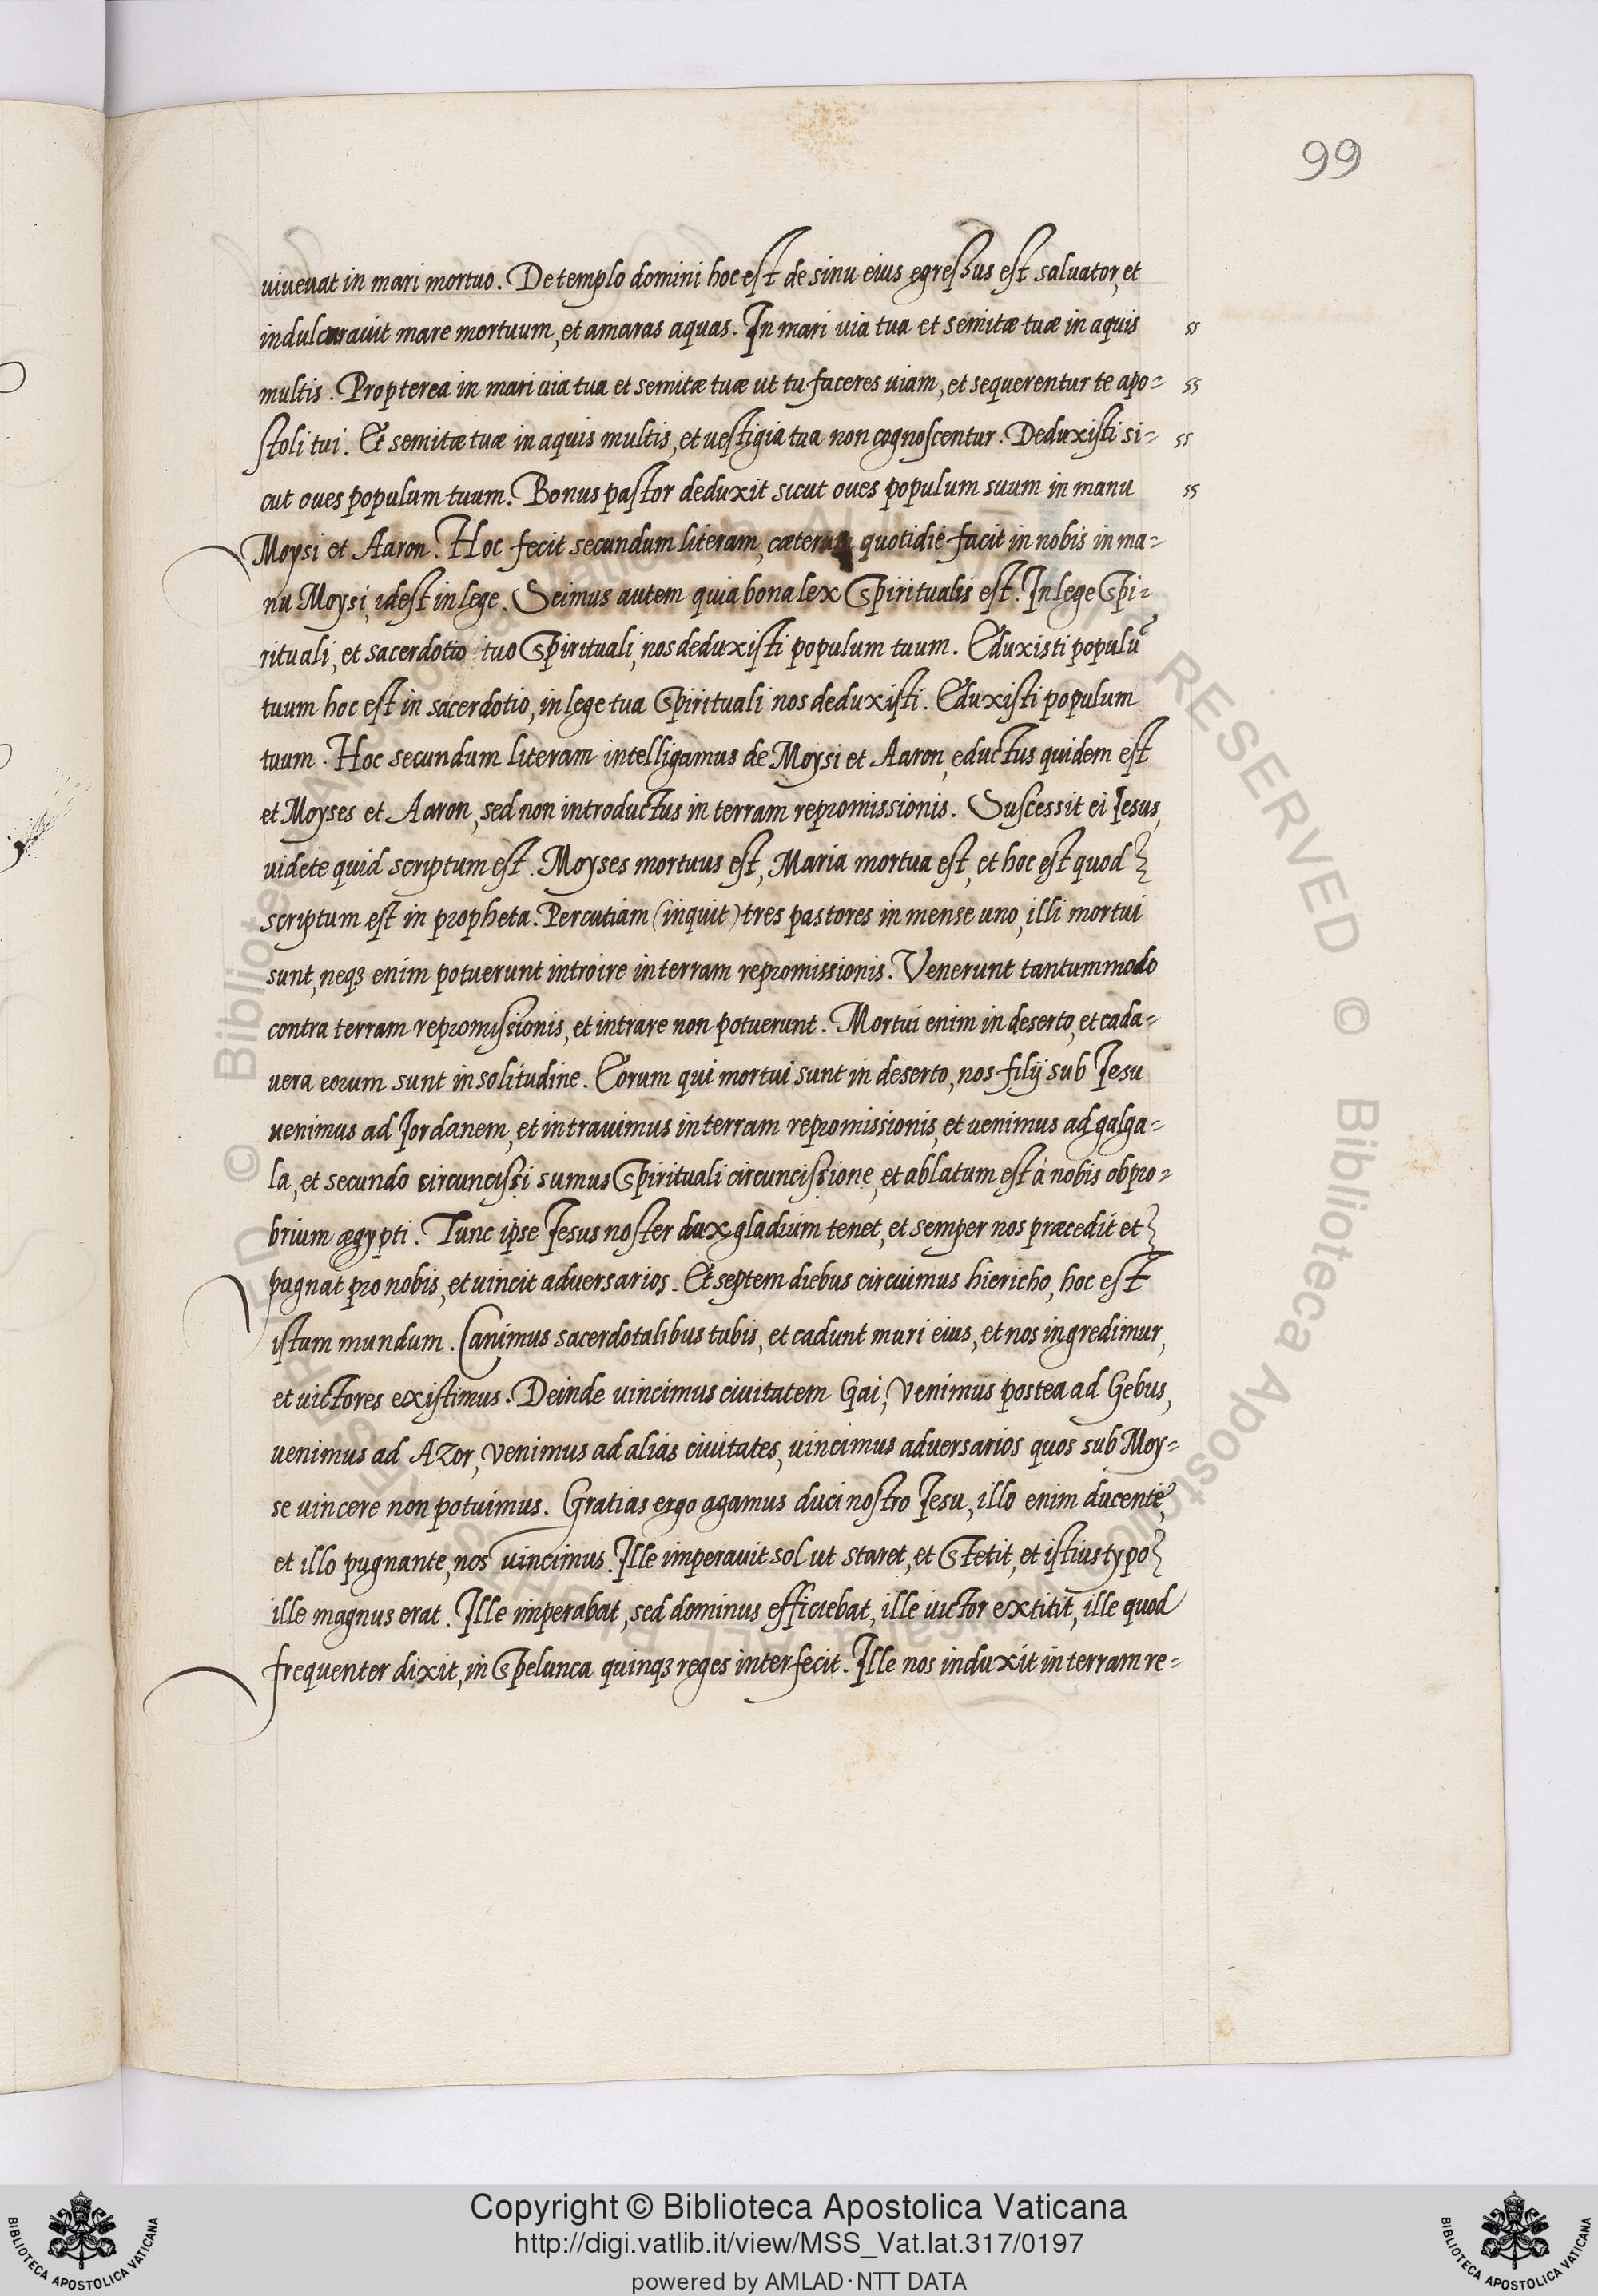 99
uiueuat in mari mortuo. De templo domini hoc est de sinu eius egressus est saluator, et
indulcorauit mare mortuum, et amaras aquas. In mari uia tua et semitæ tuæ in aquis
multis. Propterea in mari uia tua et semitæ tuæ ut tu faceres uiam, et sequerentur te apo=
stoli tui. Et semitæ tuæ in aquis multis, et uestigia tua non cognoscentur. Deduxisti si=
cut oues populum tuum. Bonus pastor deduxit sicut oues populum suum in manu
Moysi et Aaron. Hoc fecit secundum literam, cæterum quotidie facit in nobis in ma=
nu Moysi, idest in lege. Scimus autem quia bona lex Spiritualis est. In lege Spi=
rituali, et sacerdotio tuo Spirituali, nos deduxisti populum tuum. Eduxisti populũ
tuum hoc est in sacerdotio, in lege tua Spirituali nos deduxisti. Eduxisti populum
tuum. Hoc secundum literam intelligamus de Moysi et Aaron, eductus quidem est
et Moyses et Aaron, sed non introductus in terram repromissionis. Suscessit ei Iesus,
uidete quid scriptum est. Moyses mortuus est, Maria mortua est, et hoc est quod
scriptum est in propheta. Percutiam (inquit) tres pastores in mense uno, illi mortui
sunt, neqꝫ enim potuerunt introire in terram repromissionis. Venerunt tantummodo
contra terram repromissionis, et intrare non potuerunt. Mortui enim in deserto, et cada=
uera eorum sunt in solitudine. Eorum qui mortui sunt in deserto, nos filij sub Iesu
uenimus ad Iordanem, et intrauimus in terram repromissionis, et uenimus ad galga=
la, et secundo circuncissi sumus Spirituali circuncissione, et ablatum est à nobis obpro=
brium ægypti. Tunc ipse Iesus noster dux gladium tenet, et semper nos præcedit et
pugnat pro nobis, et uincit aduersarios. Et septem diebus circuimus hiericho, hoc est
istum mundum. Canimus sacerdotalibus tubis, et cadunt muri eius, et nos ingredimur,
et uictores existimus. Deinde uincimus ciuitatem Gai, Venimus postea ad Gebus,
uenimus ad Azor, Venimus ad alias ciuitates, uincimus aduersarios quos sub Moy=
se uincere non potuimus. Gratias ergo agamus duci nostro Iesu, illo enim ducente,
et illo pugnante, nos uincimus. Ille imperauit sol ut staret, et Stetit, et istius typo
ille magnus erat. Ille imperabat, sed dominus efficiebat, ille uictor extitit, ille quod
frequenter dixit, in Spelunca quinqꝫ reges interfecit. Ille nos induxit in terram re=
Copyright © Biblioteca Apostolica Vaticana
http://digi.vatlib.it/view/MSS_Vat.lat.317/0197
powered by AMLAD·NTT DATA
BIBLIOTECA APOSTOLICA VATICANA
BIBLIOTECA APOSTOLICA VATICANA